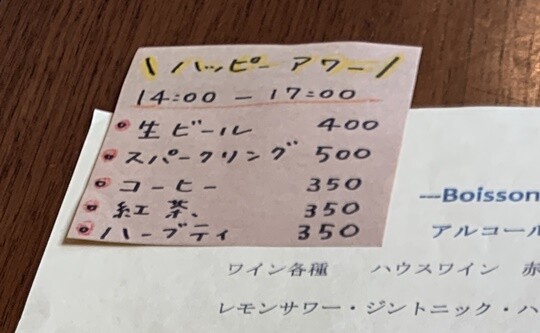 \ ハッピーアワー /
14:00 — 17:00
生ビール 400
スパークリング 500
コーヒー 350
紅茶、 350
ハーブティ 350
---Boisson
アルコール
ワイン各種 ハウスワイン 赤
レモンサワー・ジントニック・ハ